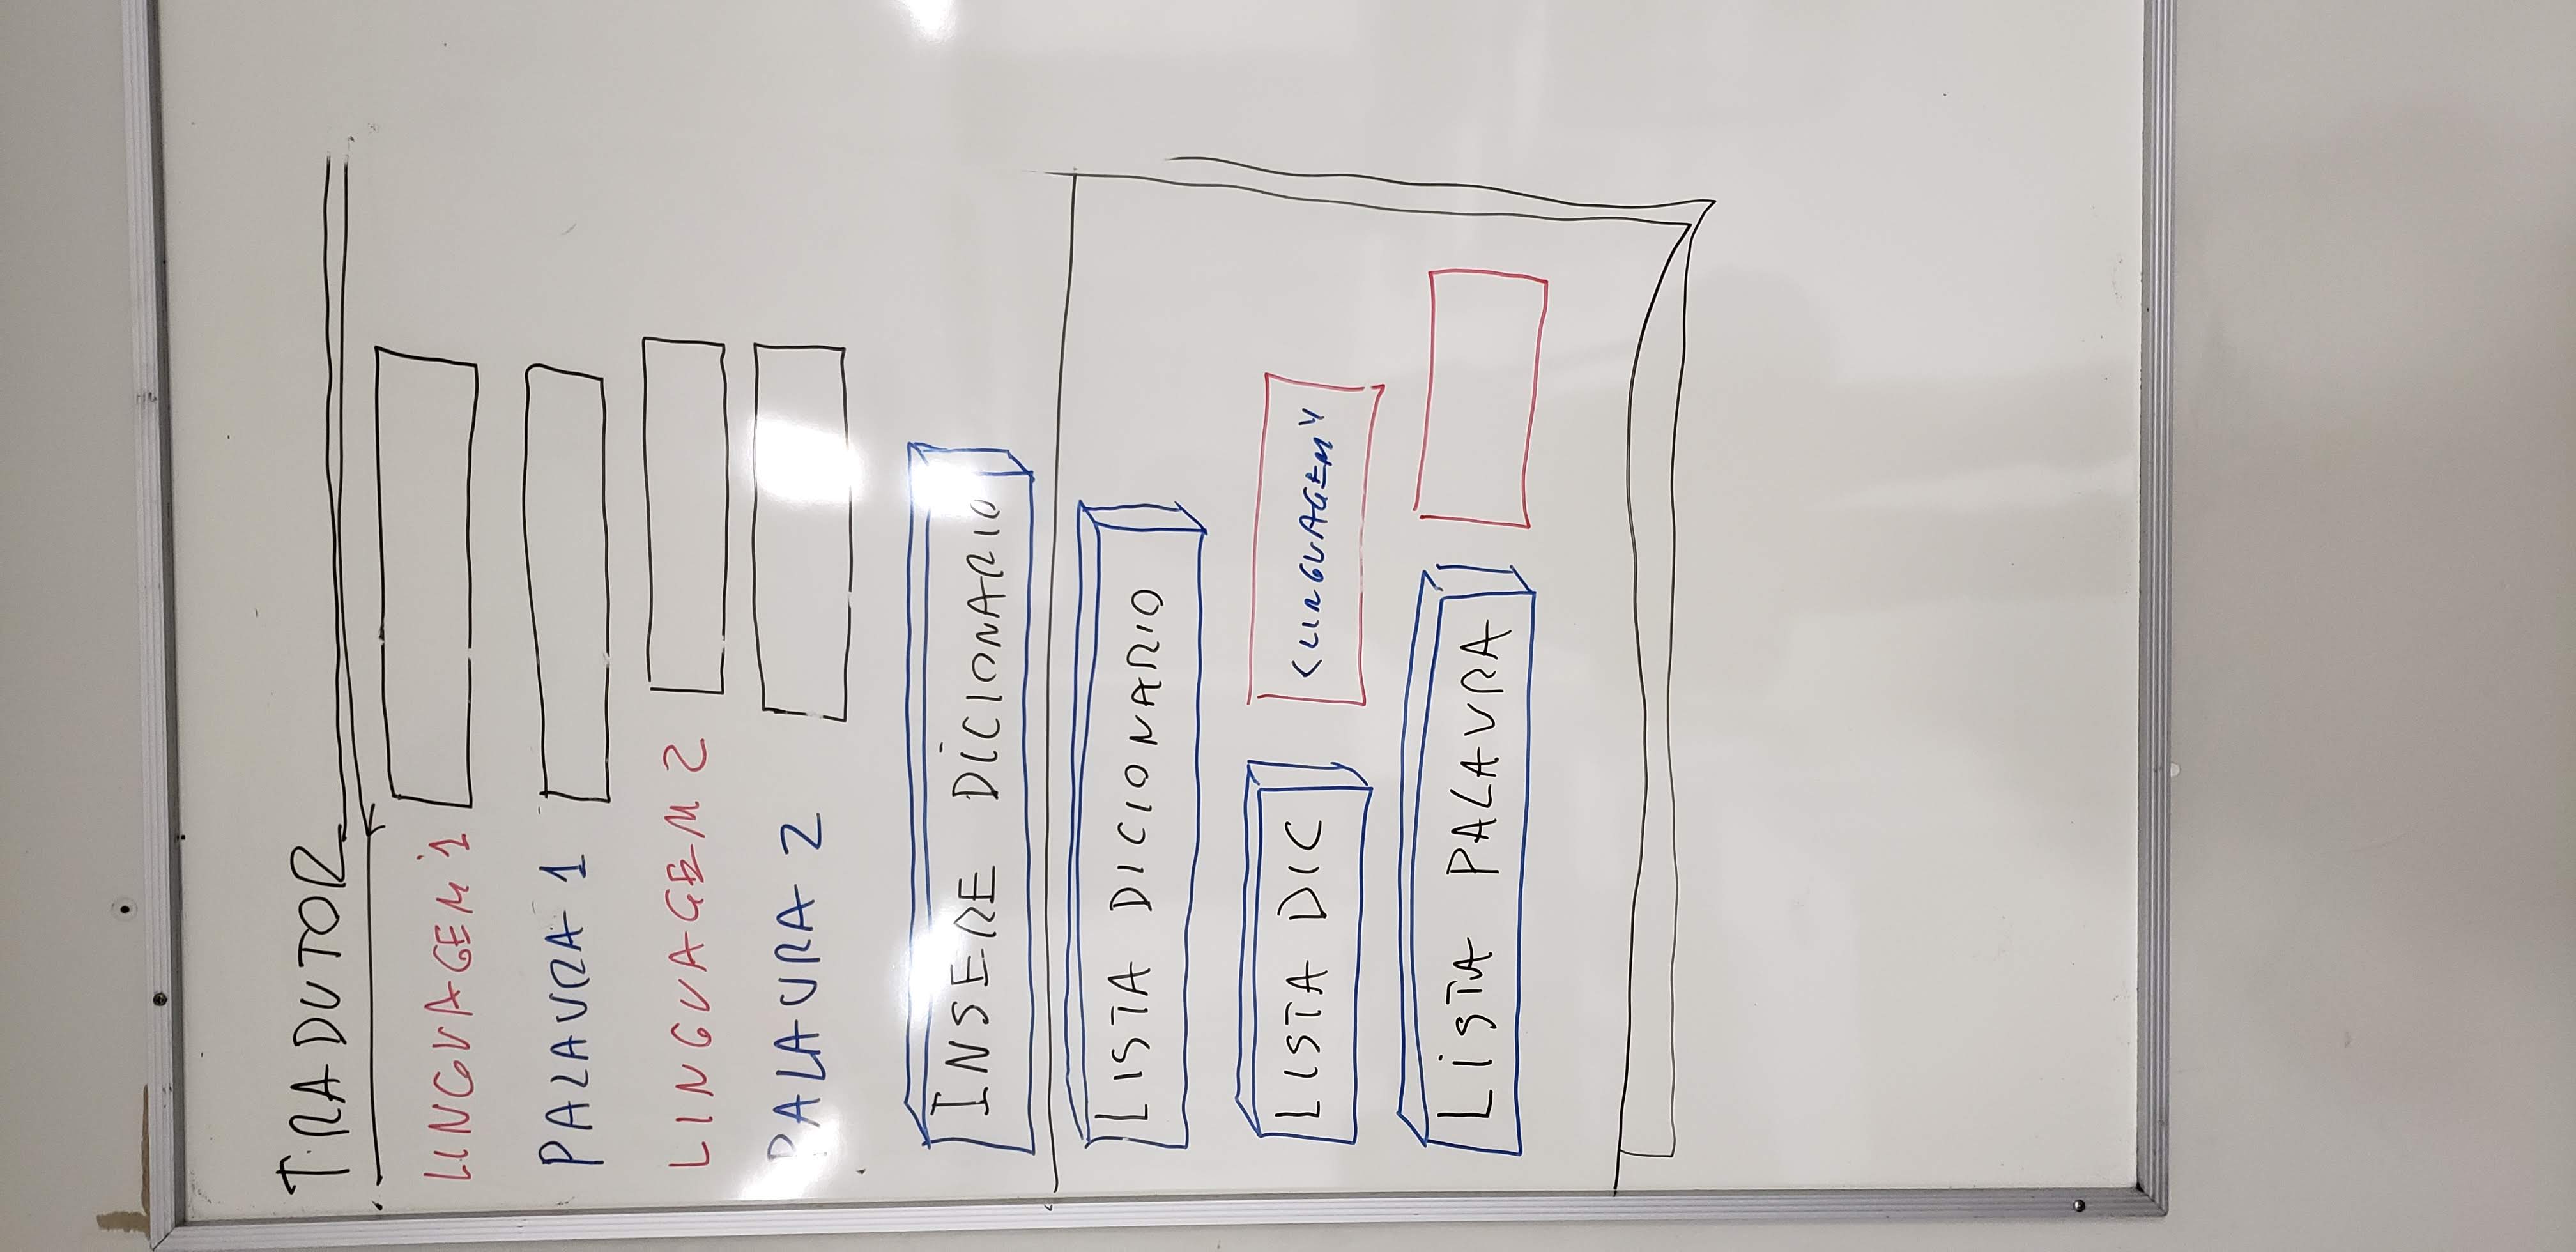 TRADUTOR
LINGUAGEM 1
PALAVRA 1
LINGUAGEM 2
PALAVRA 2
INSERE DICIONARIO
LISTA DICIONARIO
LISTA DIC <LINGUAGEM>
LISTA PALAVRA